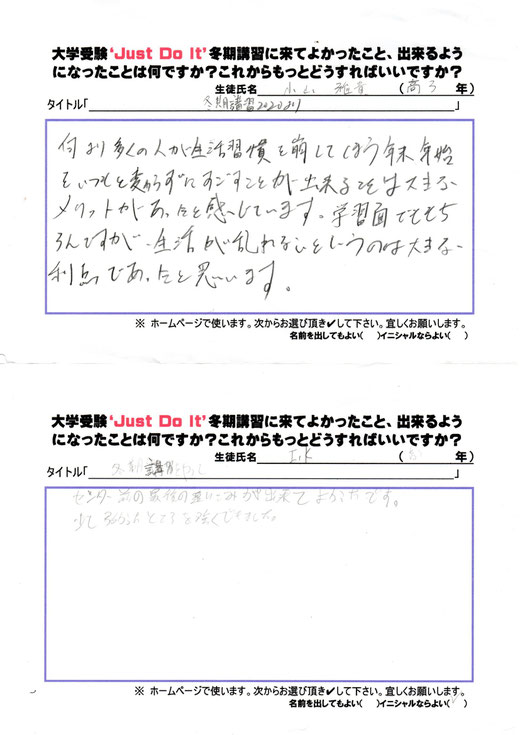 大学受験‘Just Do It’冬期講習に来てよかったこと、出来るよう
になったことは何ですか？これからもっとどうすればいいですか？
生徒氏名 小山 雅 （高3 年）
タイトル「 冬期講習2020より 」
何より多くの人が生活習慣を崩してしまう年末年始
をいつもと変わらずにすごすことが出来ることは大きな
メリットがあったと感じています。学習面でももち
ろんですが、生活が乱れないというのは大きな
利点であったと思います。
※ ホームページで使います。次からお選び頂き✔して下さい。宜しくお願いします。
名前を出してもよい（　）イニシャルならよい（　）
大学受験‘Just Do It’冬期講習に来てよかったこと、出来るよう
になったことは何ですか？これからもっとどうすればいいですか？
生徒氏名 I.K （ 年）
タイトル「 冬期講習 」
センター前の最後の追いこみが出来てよかったです。
ところを強くできました。
※ ホームページで使います。次からお選び頂き✔して下さい。宜しくお願いします。
名前を出してもよい（　）イニシャルならよい（✓）